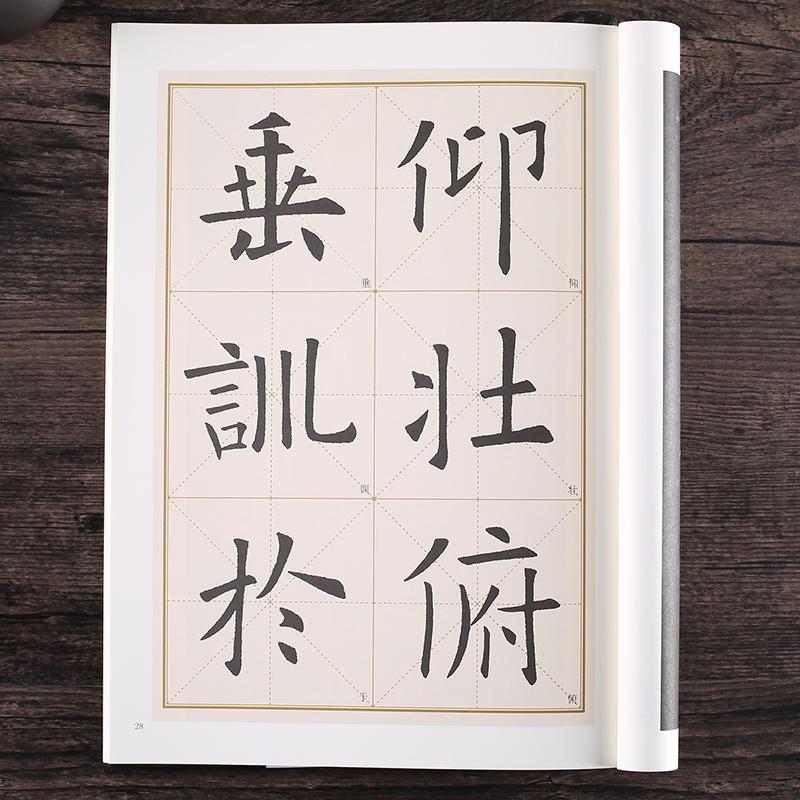 仰壮俯
垂訓於
仰
壮
俯
垂
训
于
28